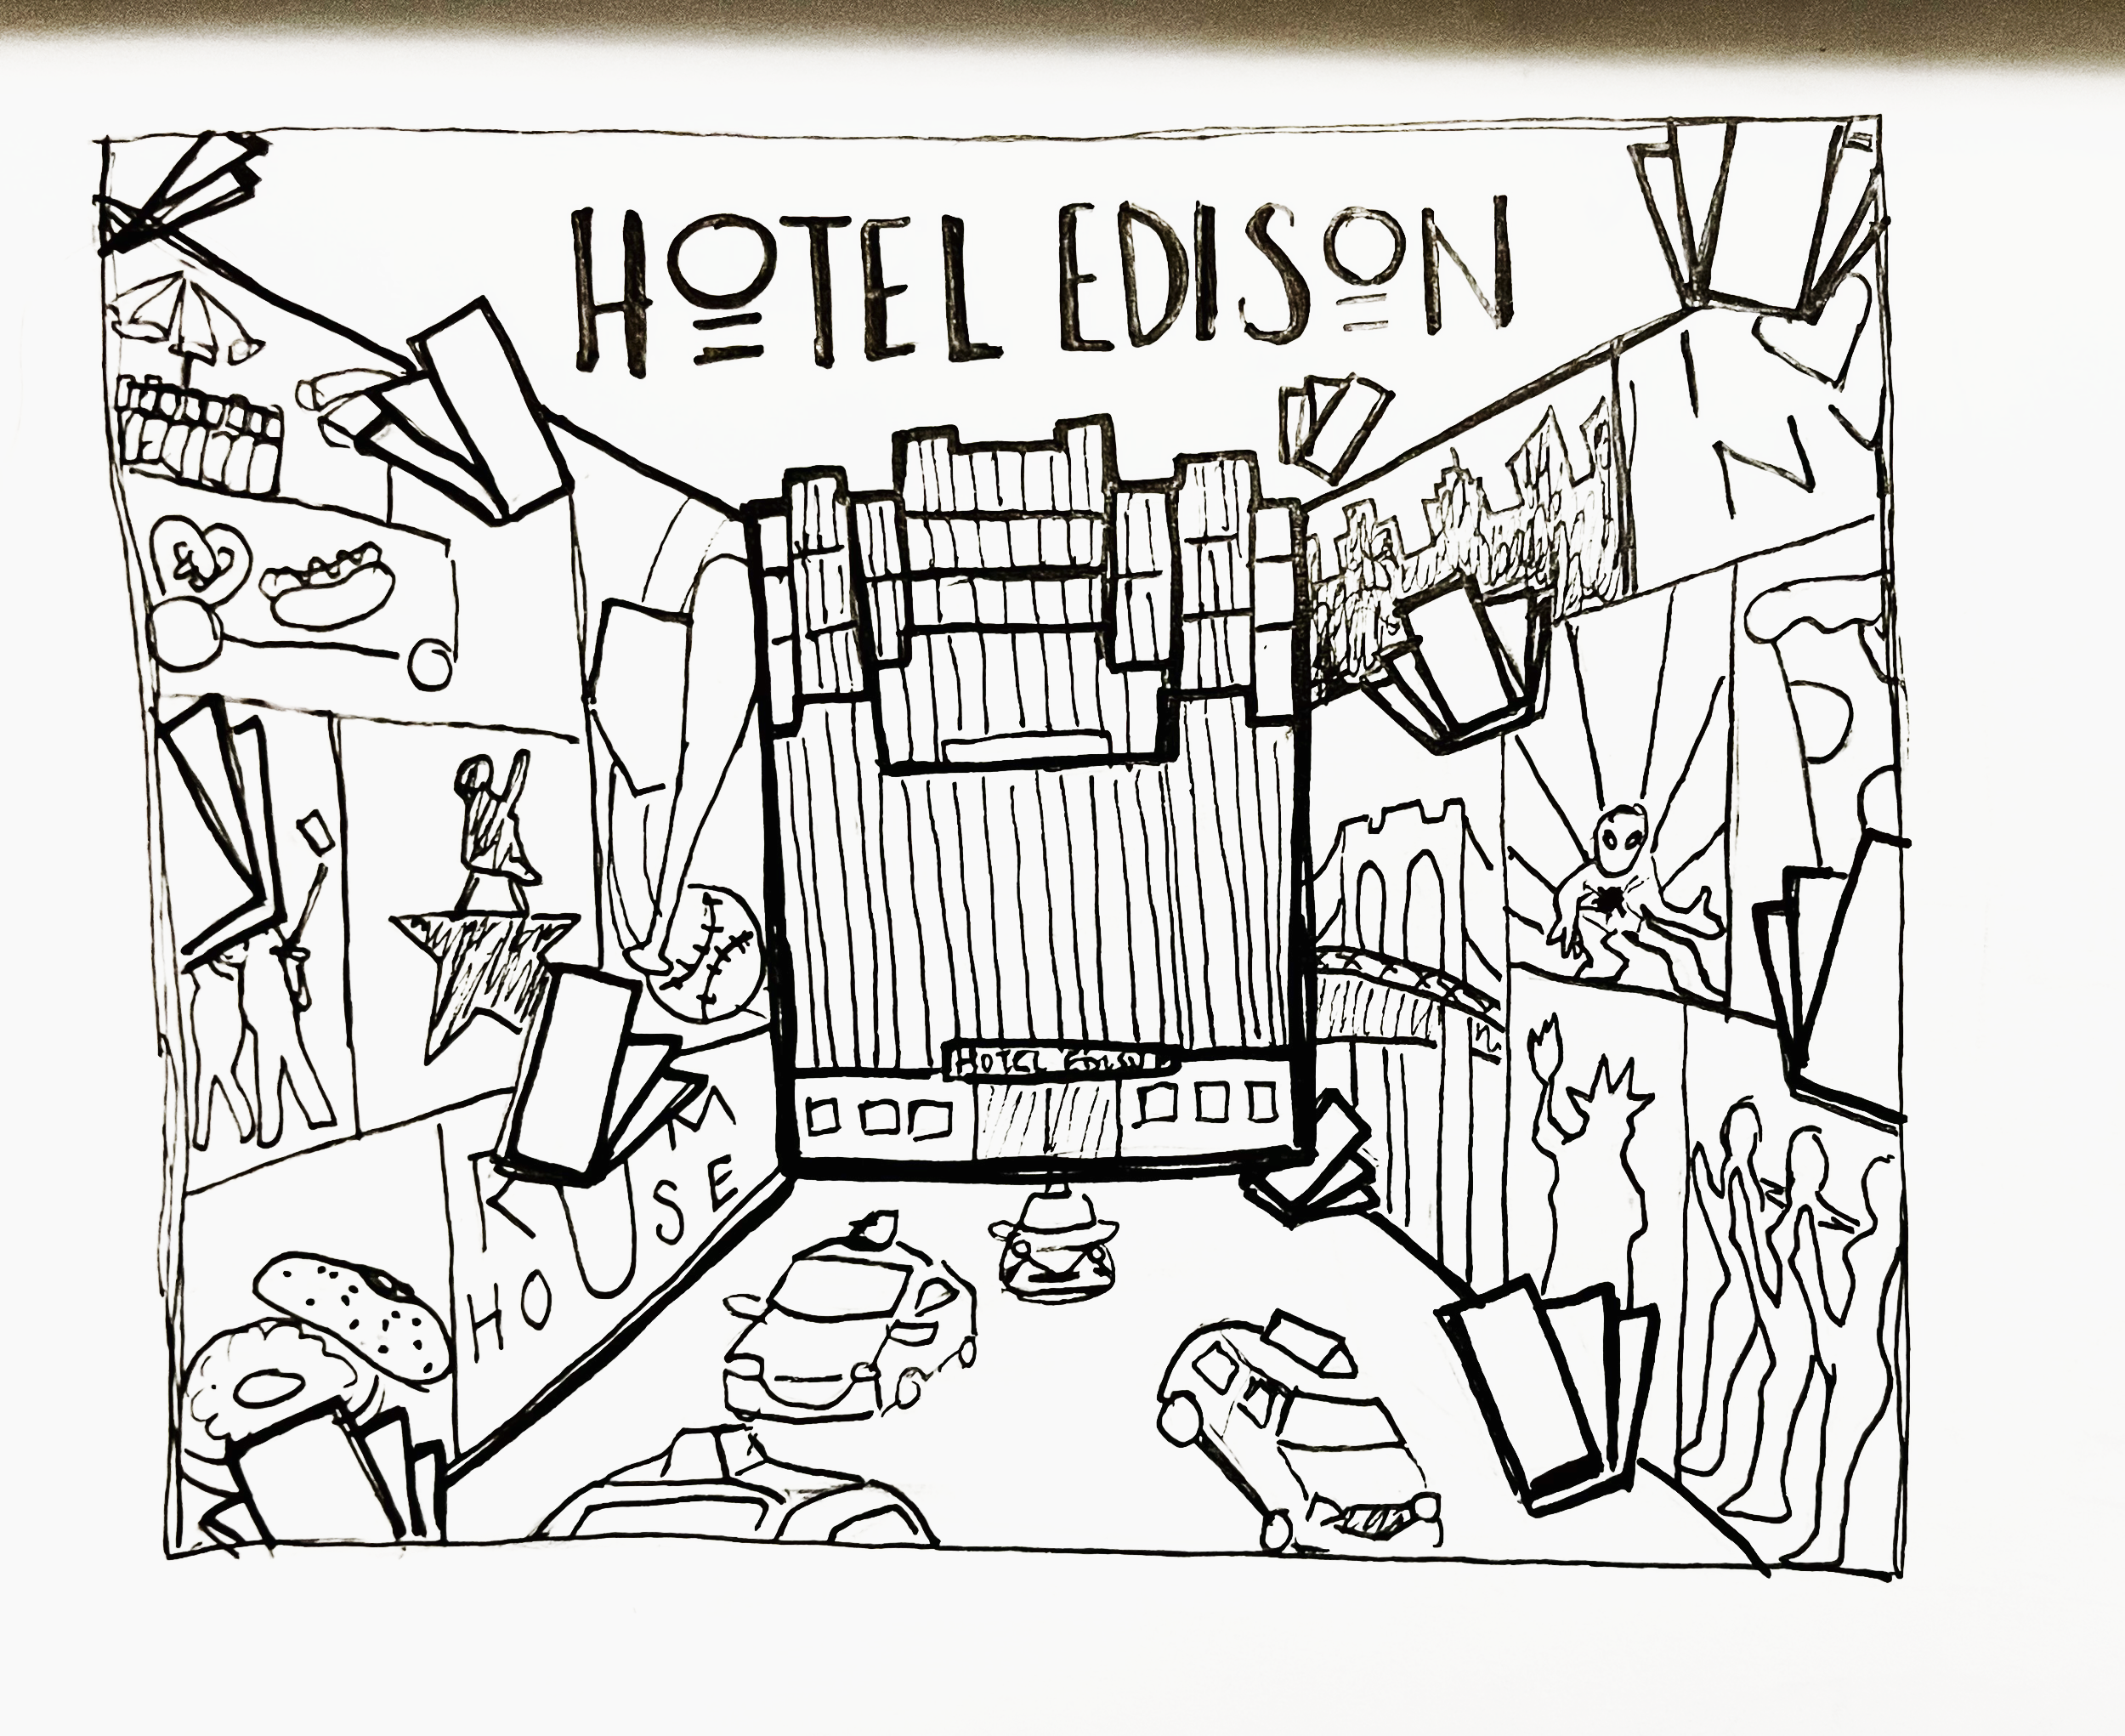 HOTEL EDISON
I
N
HOTEL EDISON
HOUSE